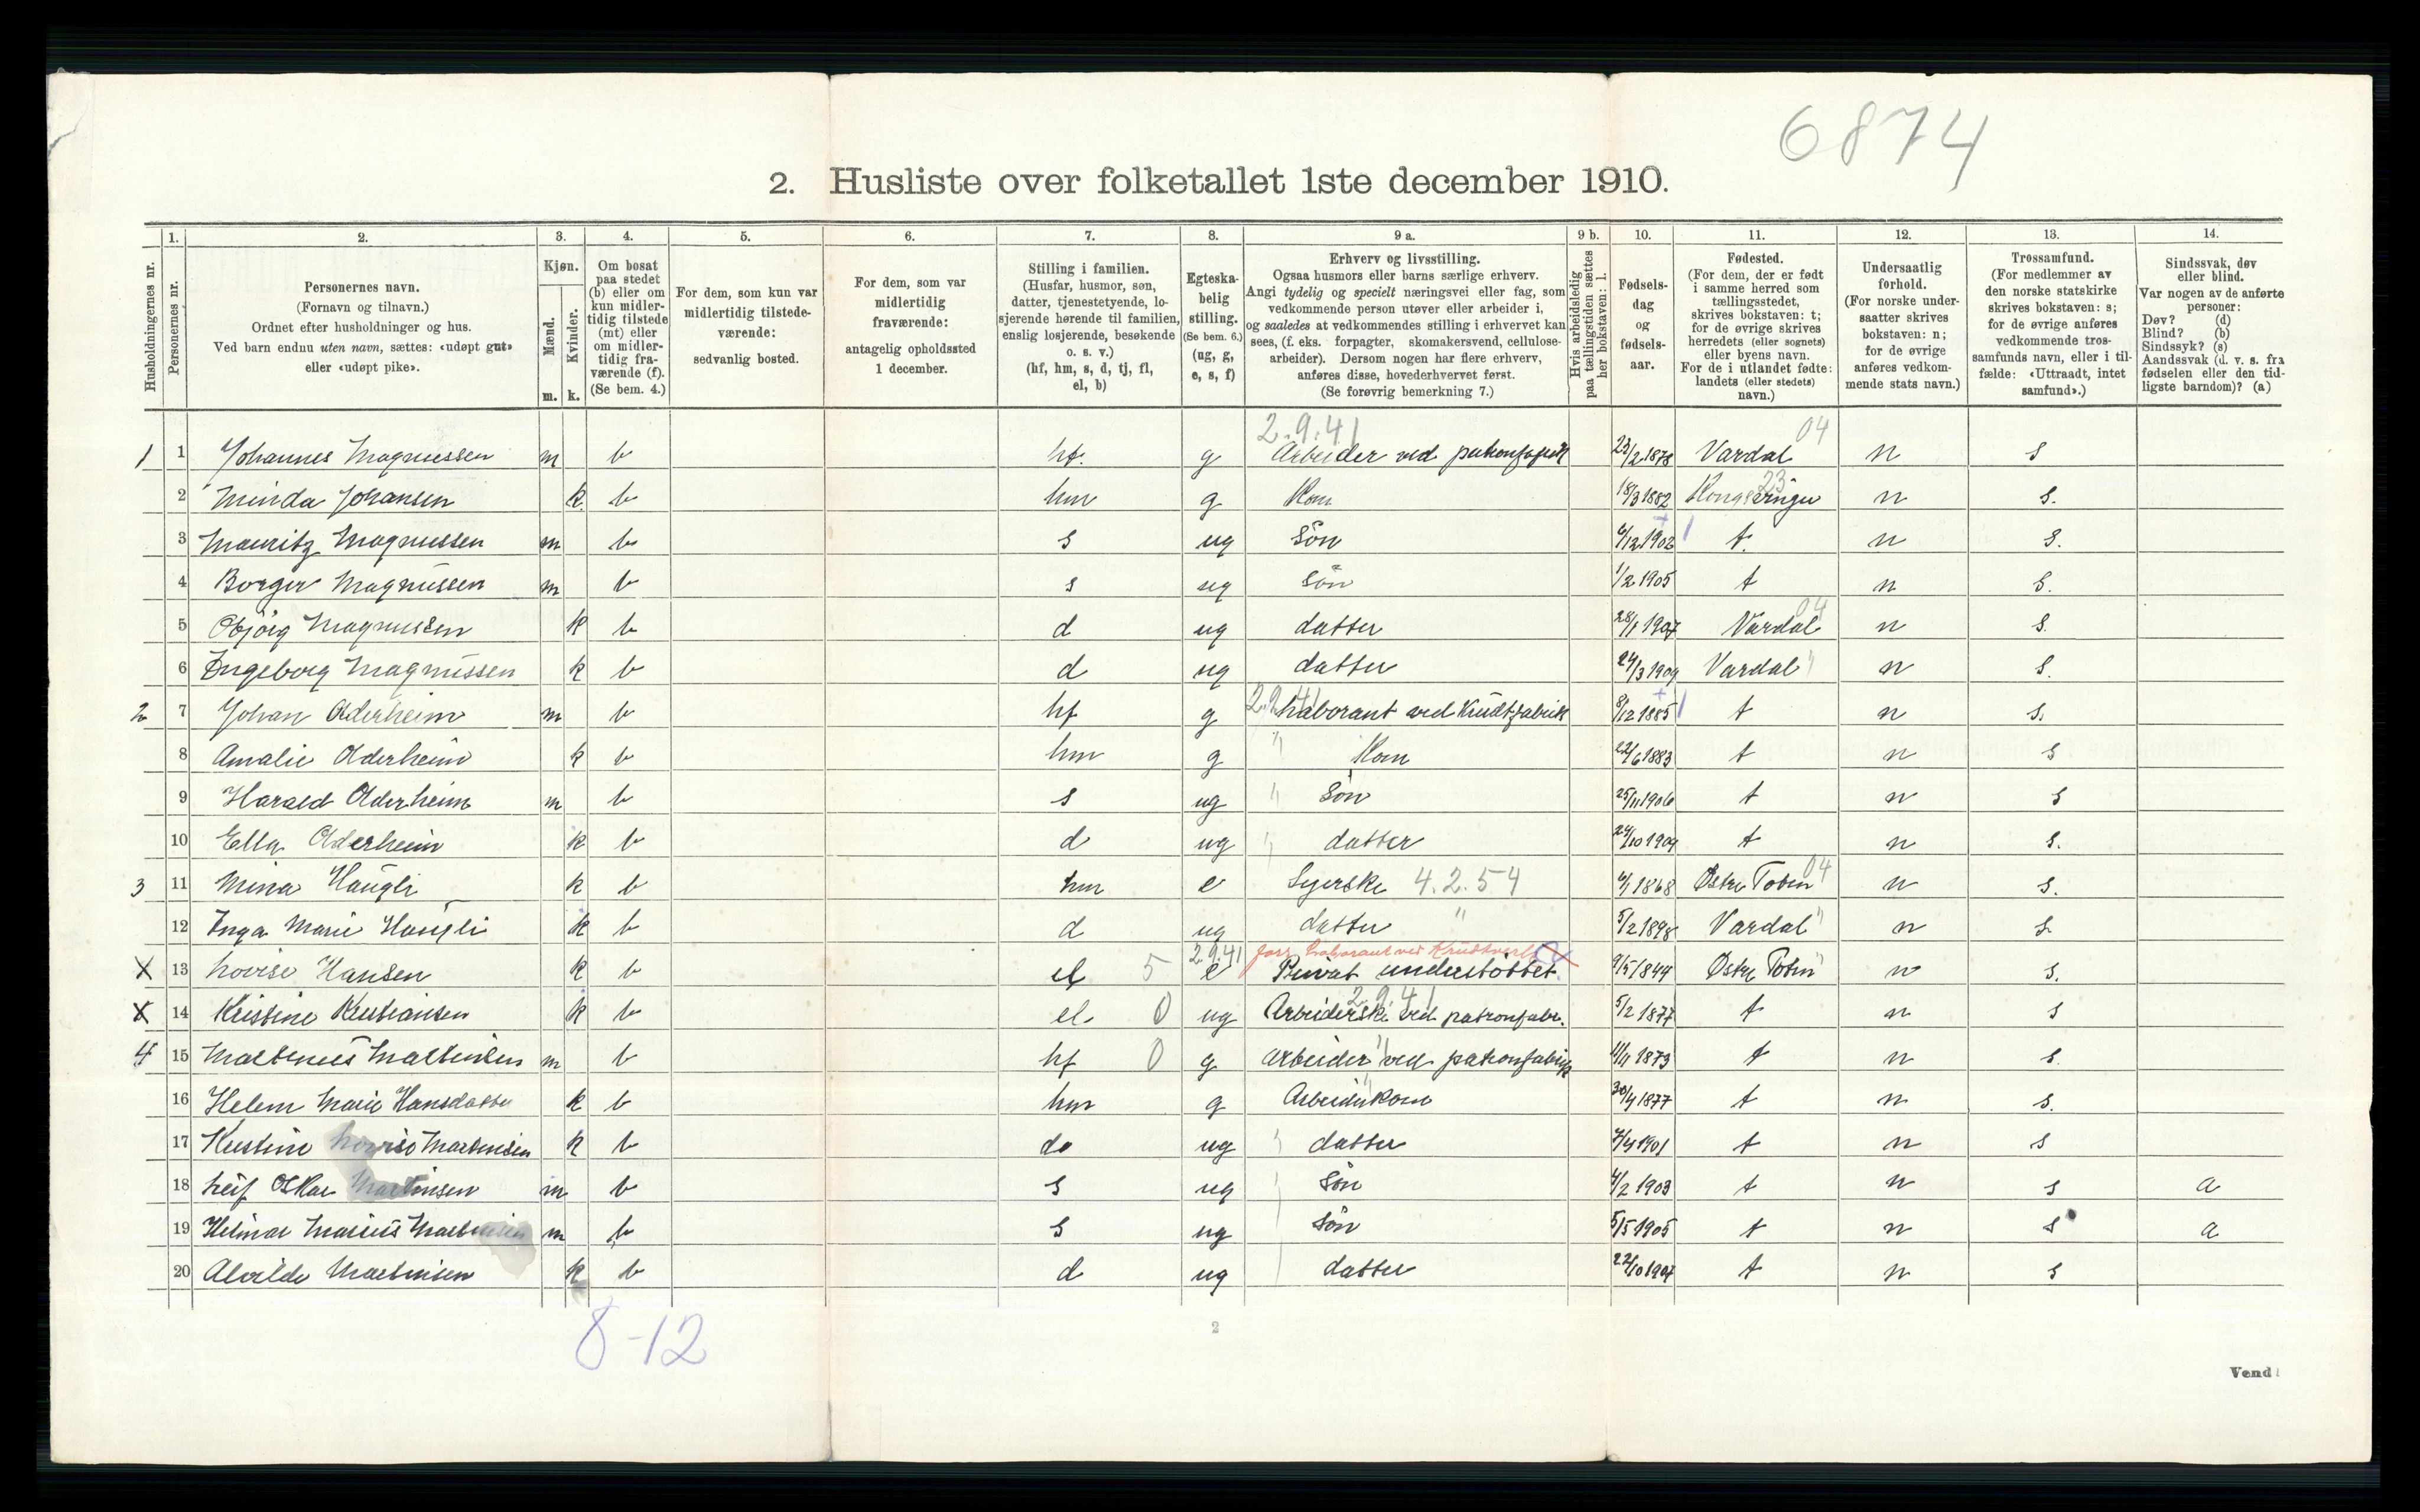 6874
2. Husliste over folketallet 1ste december 1910.
Husholdningernes nr.
1. Personernes nr.
2. Personernes navn.
(Fornavn og tilnavn.)
Ordnet efter husholdninger og hus.
Ved barn endnu uten navn, sættes: «udøpt gut»
eller «udøpt pike».
3. Kjøn.
Mænd. Kvinder.
m. k.
4. Om bosat
paa stedet
(b) eller om
kun midler-
tidig tilstede
(mt) eller
om midler-
tidig fra-
værende (f).
(Se bem. 4.)
5. For dem, som kun var
midlertidig tilstede-
værende:
sedvanlig bosted.
6. For dem, som var
midlertidig
fraværende:
antagelig opholdssted
1 december.
7. Stilling i familien.
(Husfar, husmor, søn,
datter, tjenestetyende, lo-
sjerende hørende til familien,
enslig losjerende, besøkende
o. s. v.)
(hf, hm, s, d, tj, fl,
el, b)
8. Egteska-
belig
stilling.
(Se bem. 6.)
(ug, g,
e, s, f)
9 a. Erhverv og livsstilling.
Ogsaa husmors eller barns særlige erhverv.
Angi tydelig og specielt næringsvei eller fag, som
vedkommende person utøver eller arbeider i,
og saaledes at vedkommendes stilling i erhvervet kan
sees, (f. eks. forpagter, skomakersvend, cellulose-
arbeider). Dersom nogen har flere erhverv,
anføres disse, hovederhvervet først.
(Se forøvrig bemerkning 7.)
9 b. Hvis arbeidsledig
paa tællingstiden sættes
her bokstaven: l.
10. Fødsels-
dag
og
fødsels-
aar.
11. Fødested.
(For dem, der er født
i samme herred som
tællingsstedet,
skrives bokstaven: t;
for de øvrige skrives
herredets (eller sognets)
eller byens navn.
For de i utlandet fødte:
landets (eller stedets)
navn.)
12. Undersaatlig
forhold.
(For norske under-
saatter skrives
bokstaven: n;
for de øvrige
anføres vedkom-
mende stats navn.)
13. Trossamfund.
(For medlemmer av
den norske statskirke
skrives bokstaven: s;
for de øvrige anføres
vedkommende tros-
samfunds navn, eller i til-
fælde: «Uttraadt, intet
samfund».)
14. Sindssvak, døv
eller blind.
Var nogen av de anførte
personer:
Døv? (d)
Blind? (b)
Sindssyk? (s)
Aandssvak (d. v. s. fra
fødselen eller den tid-
ligste barndom)? (a)
2.9.41 04
1 1 Johannes Magnussen m b hf. g Arbeider ved patronfabrik 23/2 1878 Vardal n s
2 Minda Johansen k b hm g Kone 18/3 1882 Kongsvinger 23 n s.
3 Mauritz Magnussen m b s ug Søn 6/12 1902 t. n s.
4 Borger Magnussen m b s ug søn 1/2 1905 t n s.
5 Magnussen k b d ug datter 28/1 1907 Vardal 04 n s.
6 Ingeborg Magnussen k b d ug datter 24/3 1909 Vardal " n s.
2 7 Johan Olderheim m b hf g 2.9.41 Laborant ved Krudtfabrik 8/12 1885 t n s.
8 Amalie Olderheim k b hm g " Kone 22/6 1883 t n s
9 Harald Olderheim m b s ug " søn 25/11 1906 t n s
10 Ella Olderheim k b d ug " datter 24/10 1909 t n s.
3 11 Mina Haugli k b hm e Syerske 4.2.54 6/1 1868 Østre Toten 04 n s.
12 Inga Marie Haugli k b d ug datter " 5/2 1898 Vardal " n s
2.9.41 Laborant ved Krudtverk
X 13 Lovise Hansen k b el 5 e Privat understöttet 9/5 1844 Østre Toten " n s.
X 14 Kristine Kristiansen k b el 0 ug Arbeiderske ved patronfabr. 2.9.41 5/2 1877 t n s
4 15 Martinus Martinsen m b hf 0 g Arbeider " ved patronfabrik 11/11 1873 t n s.
16 Helene Marie Hansdatter k b hm g Arbeiderkone 30/4 1877 t n s.
17 Kristine Lovise Martinsen k b do ug " datter 7/4 1901 t n s
18 Leif Oskar Martinsen m b s ug søn 4/2 1903 t n s a
19 Helmar Marius Martinsen m b s ug søn 5/5 1905 t n s a
20 Alvilde Martinsen k b d ug datter 22/10 1907 t n s
8-12
2
Vend!